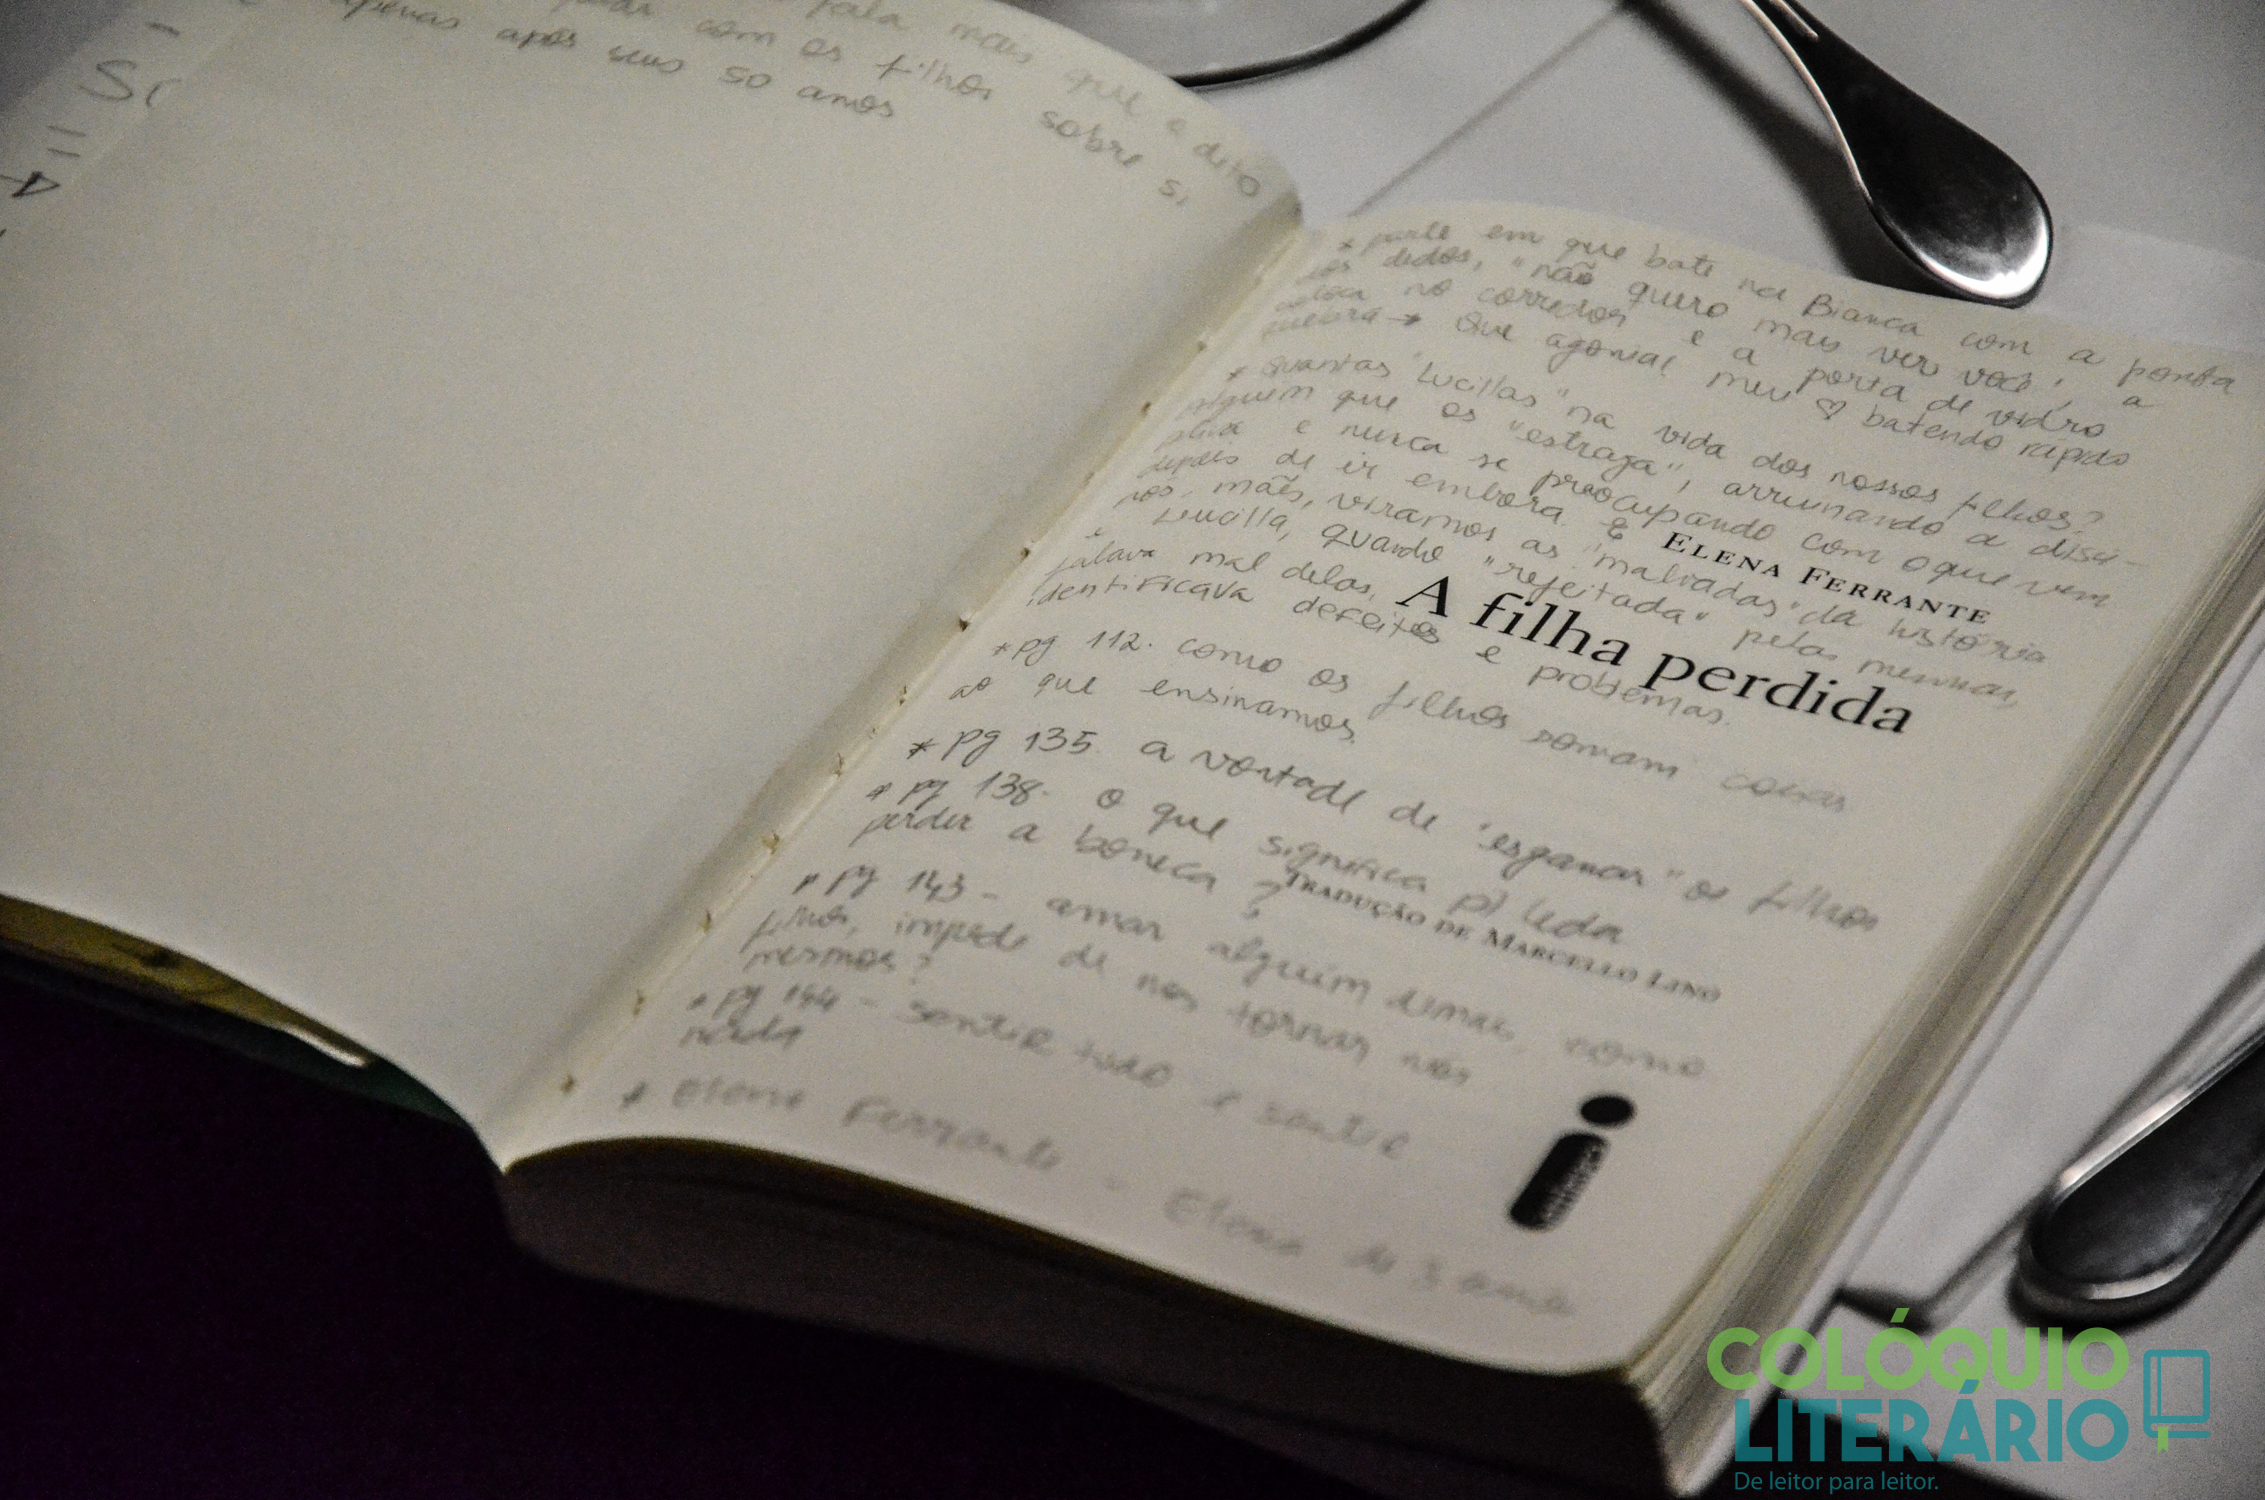 fala mais que o dito
com os filhos sobre si
apenas após seus 50 anos
Si
=
4
* parte em que bate na Bianca com a boneca
dedos, "não quero mais ver você", a
coloca no corredor e a porta de vidro
quebra → Que agonia! meu ♡ batendo rápido
* Quantas "Lucillas" na vida dos nossos filhos?
Alguém que os "estraga", arruinando a disci-
plina e nunca se preocupando com o que vem
depois de ir embora. E
nós, mães, viramos as "malvadas" da história
e Lucilla, quando "rejeitada" pelas meninas,
falava mal delas,
identificava defeitos e problemas.
ELENA FERRANTE
A filha perdida
* pg 112. como os filhos somam coisas
ao que ensinamos.
* pg 135. a vontade de "esganar" os filhos
* pg 138. o que significa p/ Leda
perder a boneca?
TRADUÇÃO DE MARCELLO LINO
* pg 143 - amar alguém demais, como
filhos, impede de nos tornar nós
mesmos?
* pg 144 - sentir tudo e sentir
nada
* Elena Ferrante - Elena de 3 anos
i
COLÓQUIO
LITERÁRIO
De leitor para leitor.